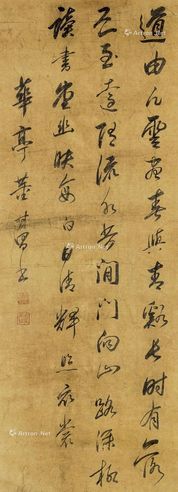 道由白雲盡春與青谿長時有落
花至遠隨流水香閒門向山路深柳
讀書堂幽映每白日清輝照衣裳
華亭董其昌書
Artron.Net
Artron.Net
Artron.Net